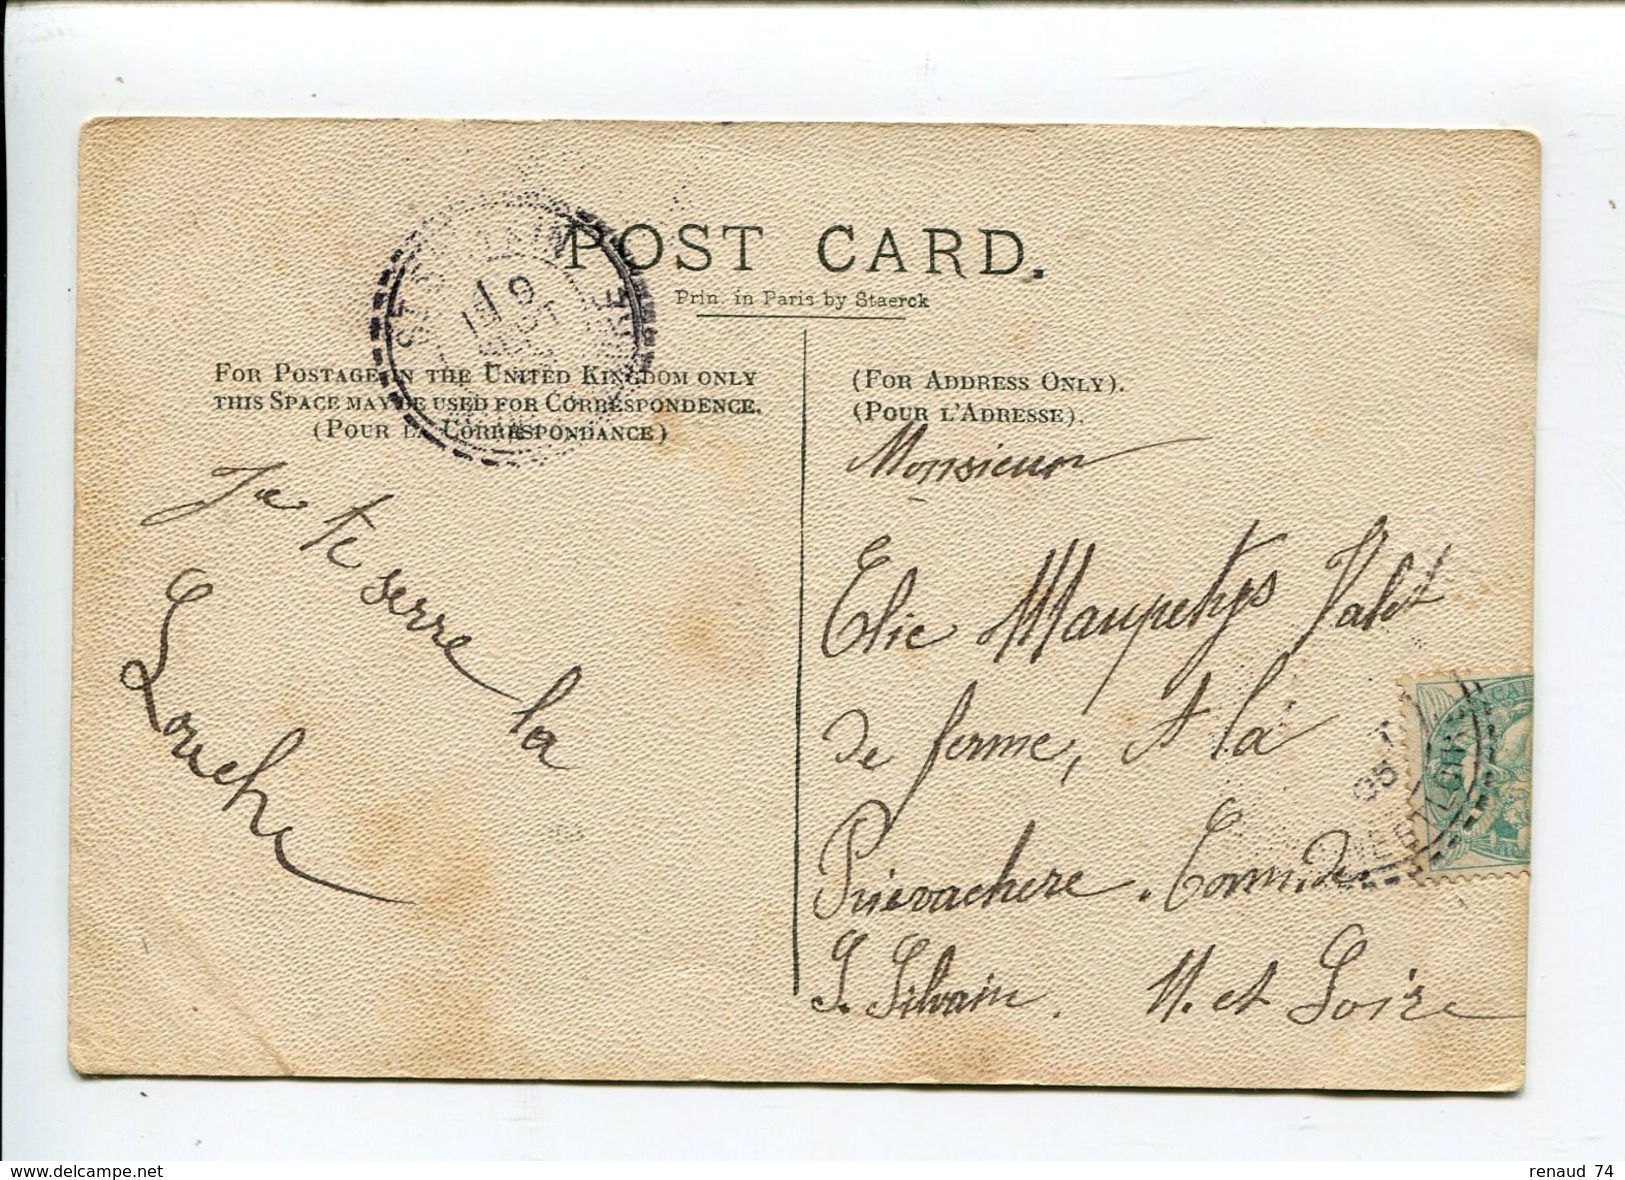 POST CARD.
Prin. in Paris by Staerck
FOR POSTAGE IN THE UNITED KINGDOM ONLY
THIS SPACE MAY BE USED FOR CORRESPONDENCE.
(POUR LA CORRESPONDANCE)
(FOR ADDRESS ONLY).
(POUR L'ADRESSE).
Je te serre la
Louche
Monsieur
Elie Maupetys Valet
de ferme, A la
Prievachere. Comm. de
S. Silvain. M. et Loire
www.delcampe.net
renaud 74